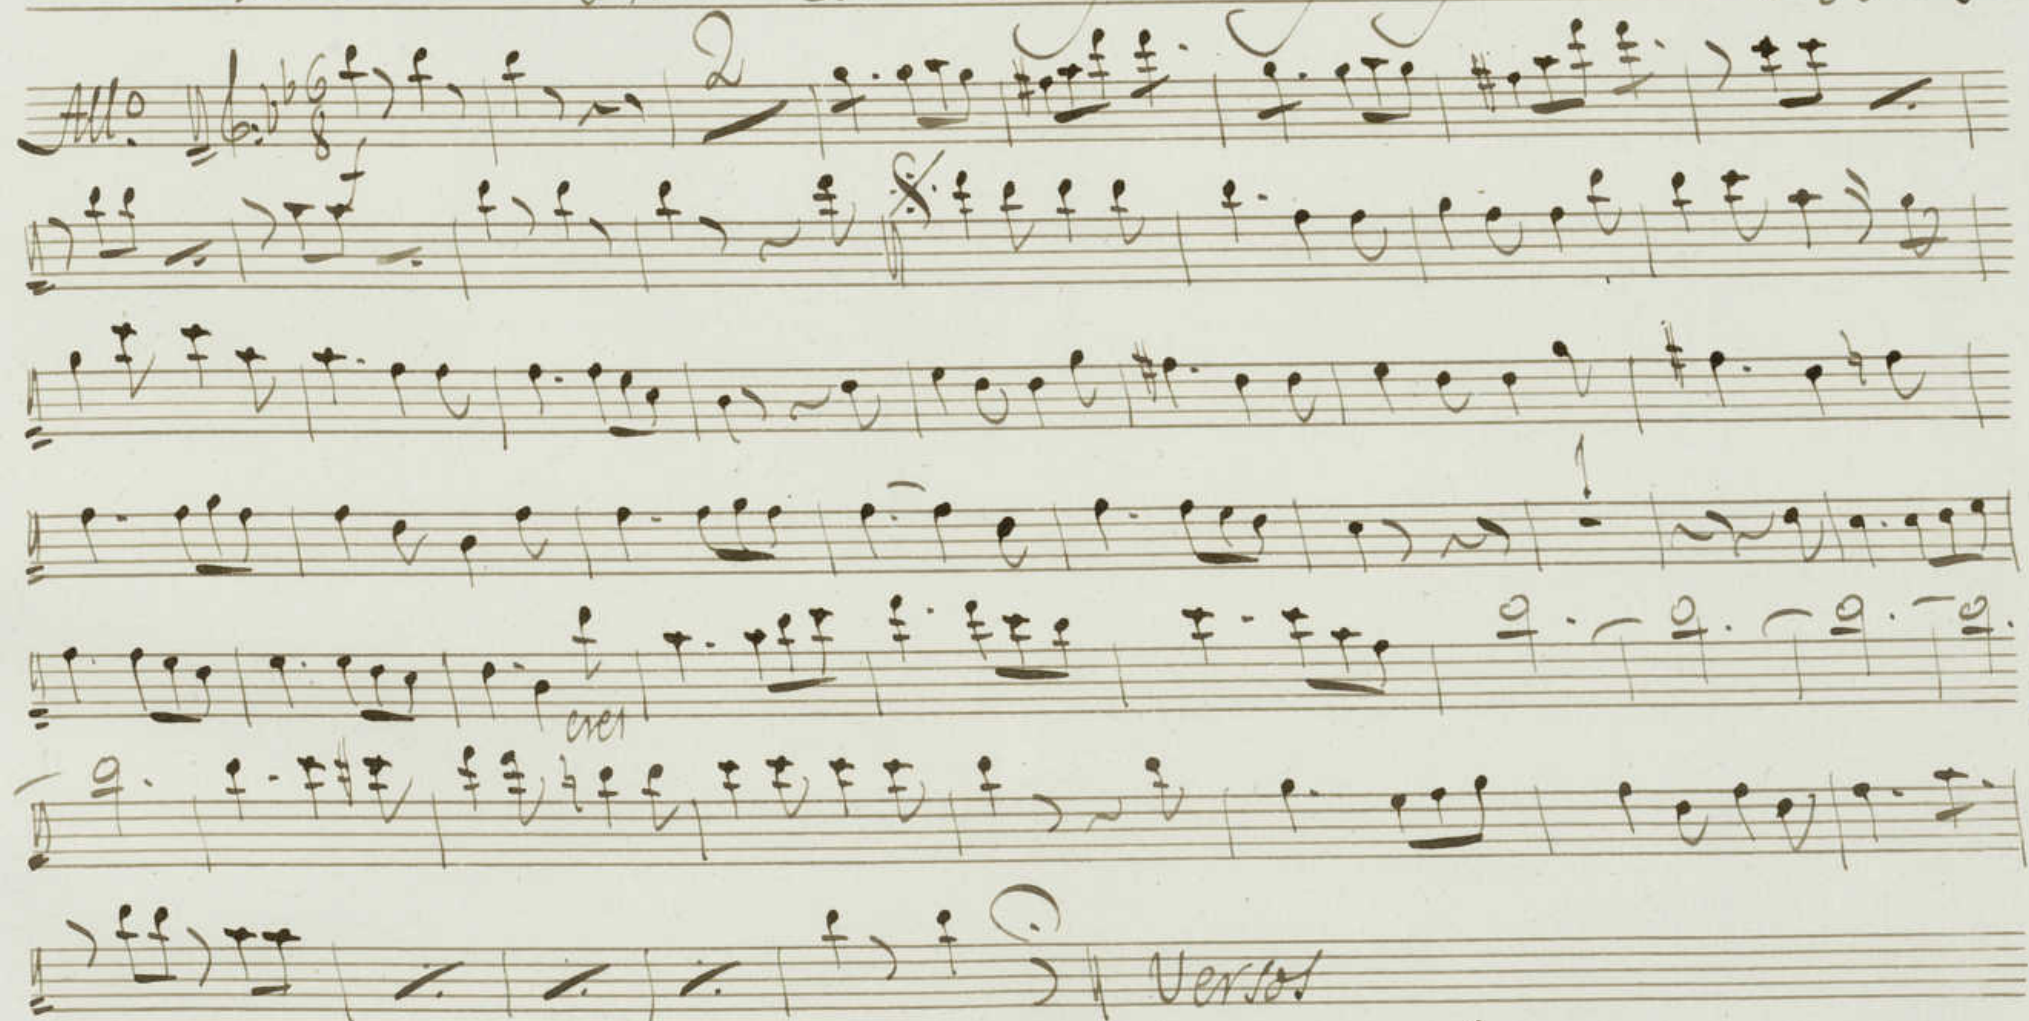 All.o 6 8 2
f
1
cres
Versos